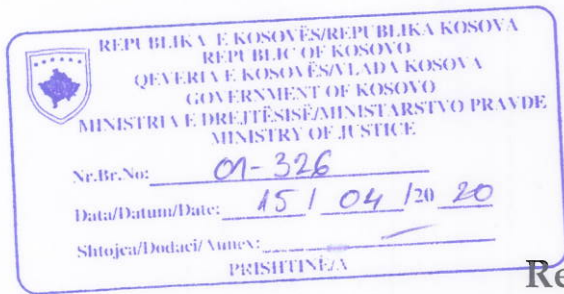 REPUBLIKA E KOSOVËS/REPUBLIKA KOSOVA
REPUBLIC OF KOSOVO
QEVERIA E KOSOVËS/VLADA KOSOVA
GOVERNMENT OF KOSOVO
MINISTRIA E DREJTËSISË/MINISTARSTVO PRAVDE
MINISTRY OF JUSTICE
Nr.Br.No: 01-326
Data/Datum/Date: 15 / 04 /20 20
Shtojca/Dodaci/Annex:
PRISHTINË/A
Re